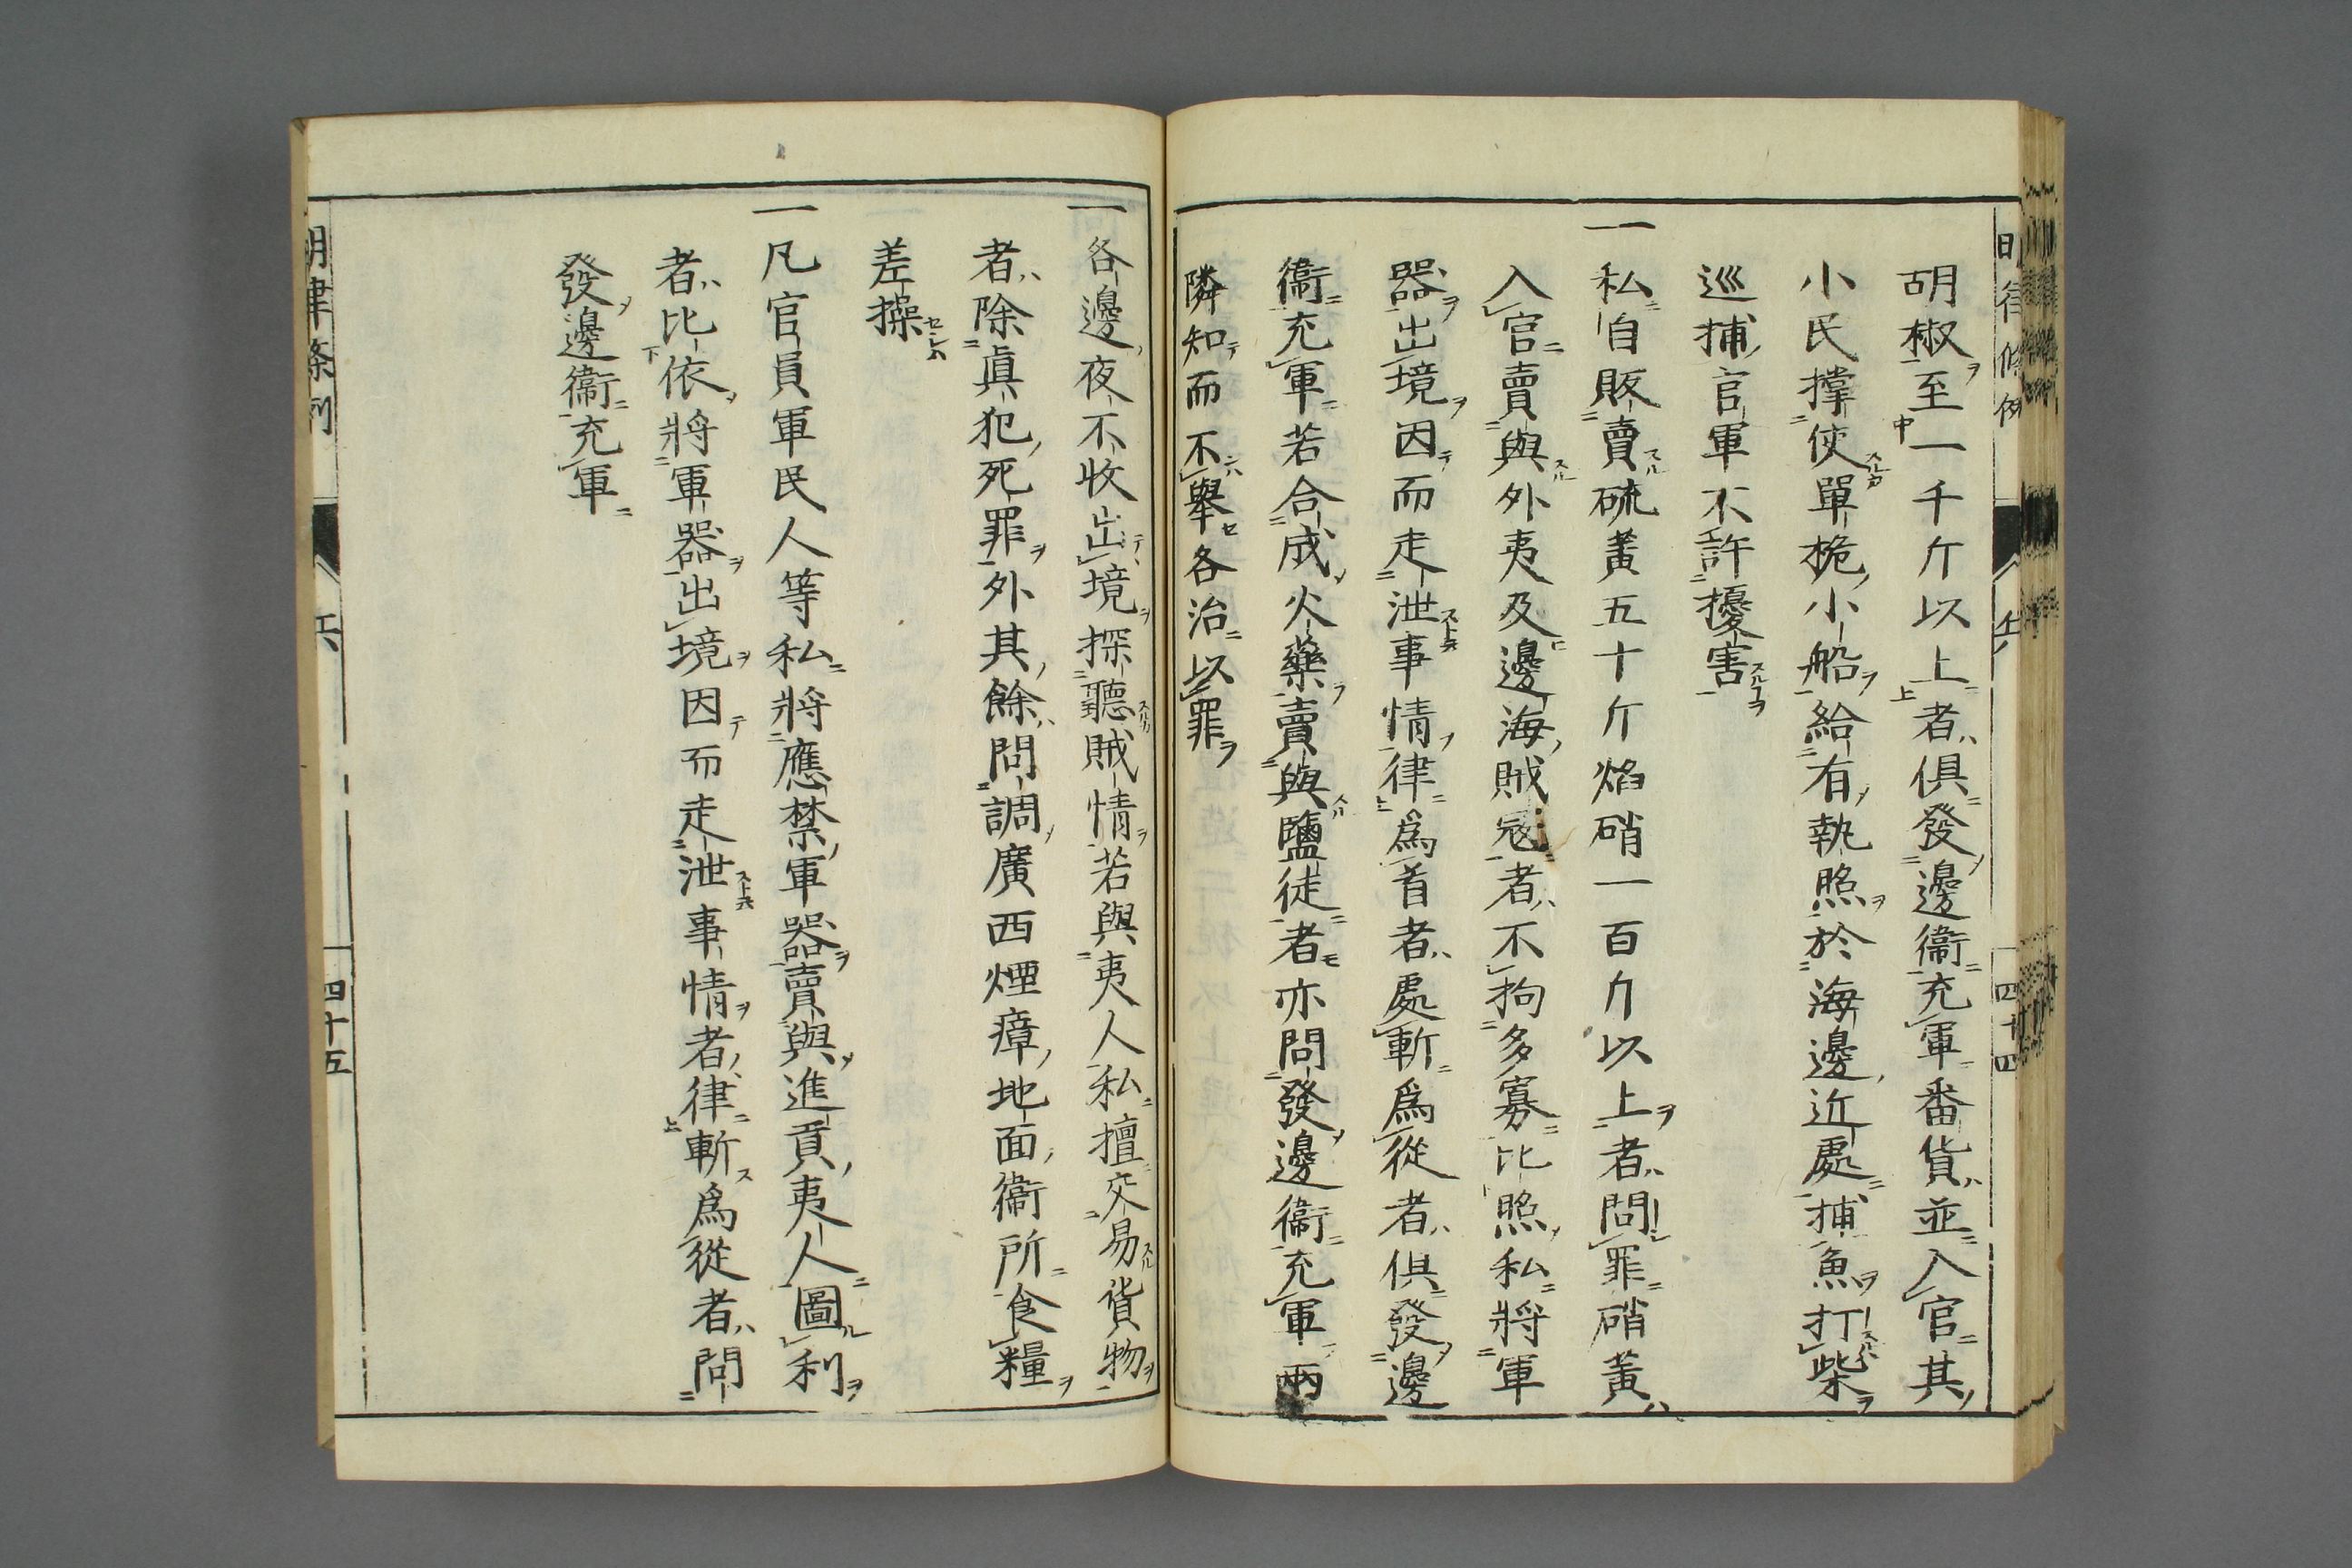 胡椒至一千斤以上者俱發邊衞充軍番貨並入官其
小民撑使單桅小船給有執照於海邊近處捕魚打柴
巡捕官軍不許擾害
一私自販賣硫黃五十斤焰硝一百斤以上者問罪硝黃
入官賣與外夷及邊海賊寇者不拘多寡比照私將軍
器出境因而走泄事情律爲首者處斬爲從者俱發邊
衞充軍若合成火藥賣與鹽徒者亦問發邊衞充軍兩
隣知而不舉各治以罪
一各邊夜不收出境探聽賊情若與夷人私擅交易貨物
者除眞犯死罪外其餘問調廣西煙瘴地面衞所食糧
差操
一凡官員軍民人等私將應禁軍器賣與進貢夷人圖利
者比依將軍器出境因而走泄事情者律斬爲從者問
發邊衞充軍
明律條例
四十五